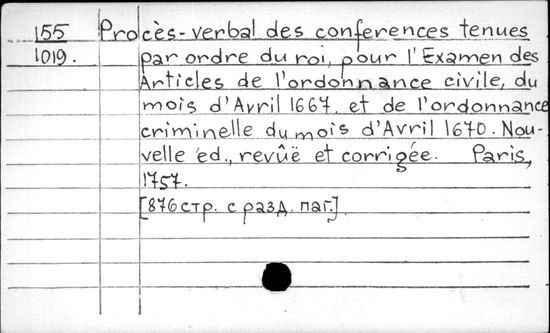 155 Procès-verbal des conferences tenues
1019. par ordre du roi, pour l'Examen des
Articles de l'ordonnance civile, du
mois d'Avril 1667. et de l'ordonnance
criminelle du mois d'Avril 1670. Nou-
velle éd., revûë et corrigée. Paris,
1757.
[876 стр. с разд. паг.]